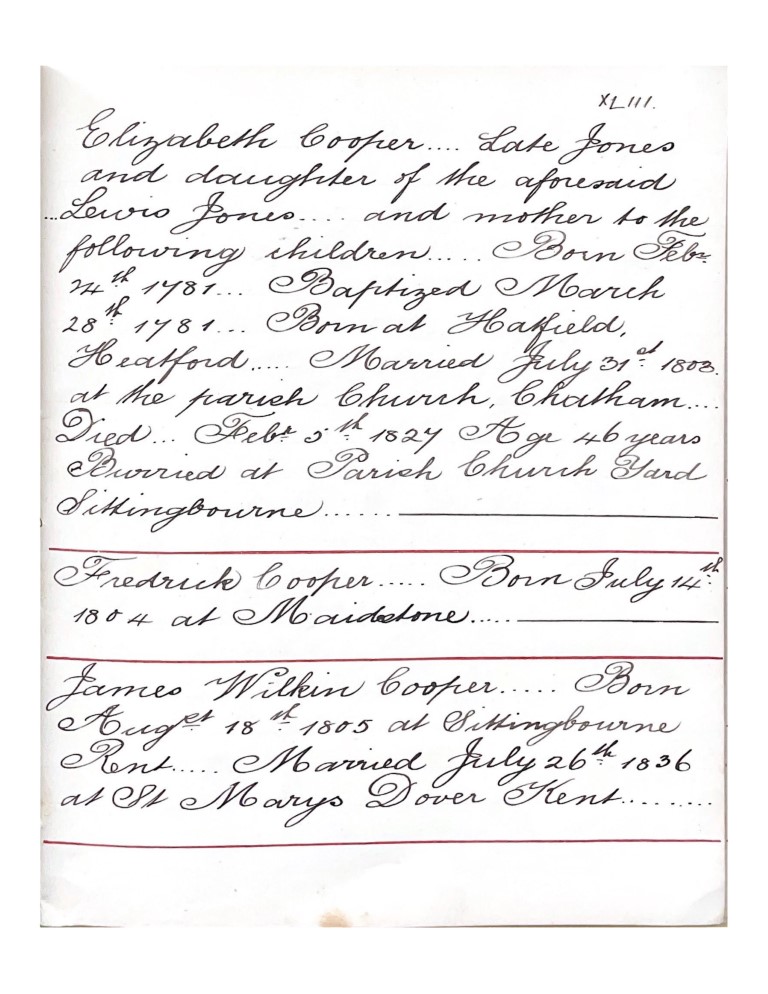 XLIII.
Elizabeth Cooper.... Late Jones
and daughter of the aforesaid
...Lewis Jones.... and mother to the
following children..... Born Febr
24th 1781... Baptized March
28th 1781... Born at Hatfield,
Heatford..... Married July 31st 1803.
at the parish Church, Chatham....
Died... Febr 5th 1827 Age 46 years
Burried at Parish Church Yard
Sittingbourne......
Fredrick Cooper..... Born July 14th
1804 at Maidstone.....
James Wilkin Cooper..... Born
Augst 18th 1805 at Sittingbourne
Kent..... Married July 26th 1836
at St Marys Dover Kent........